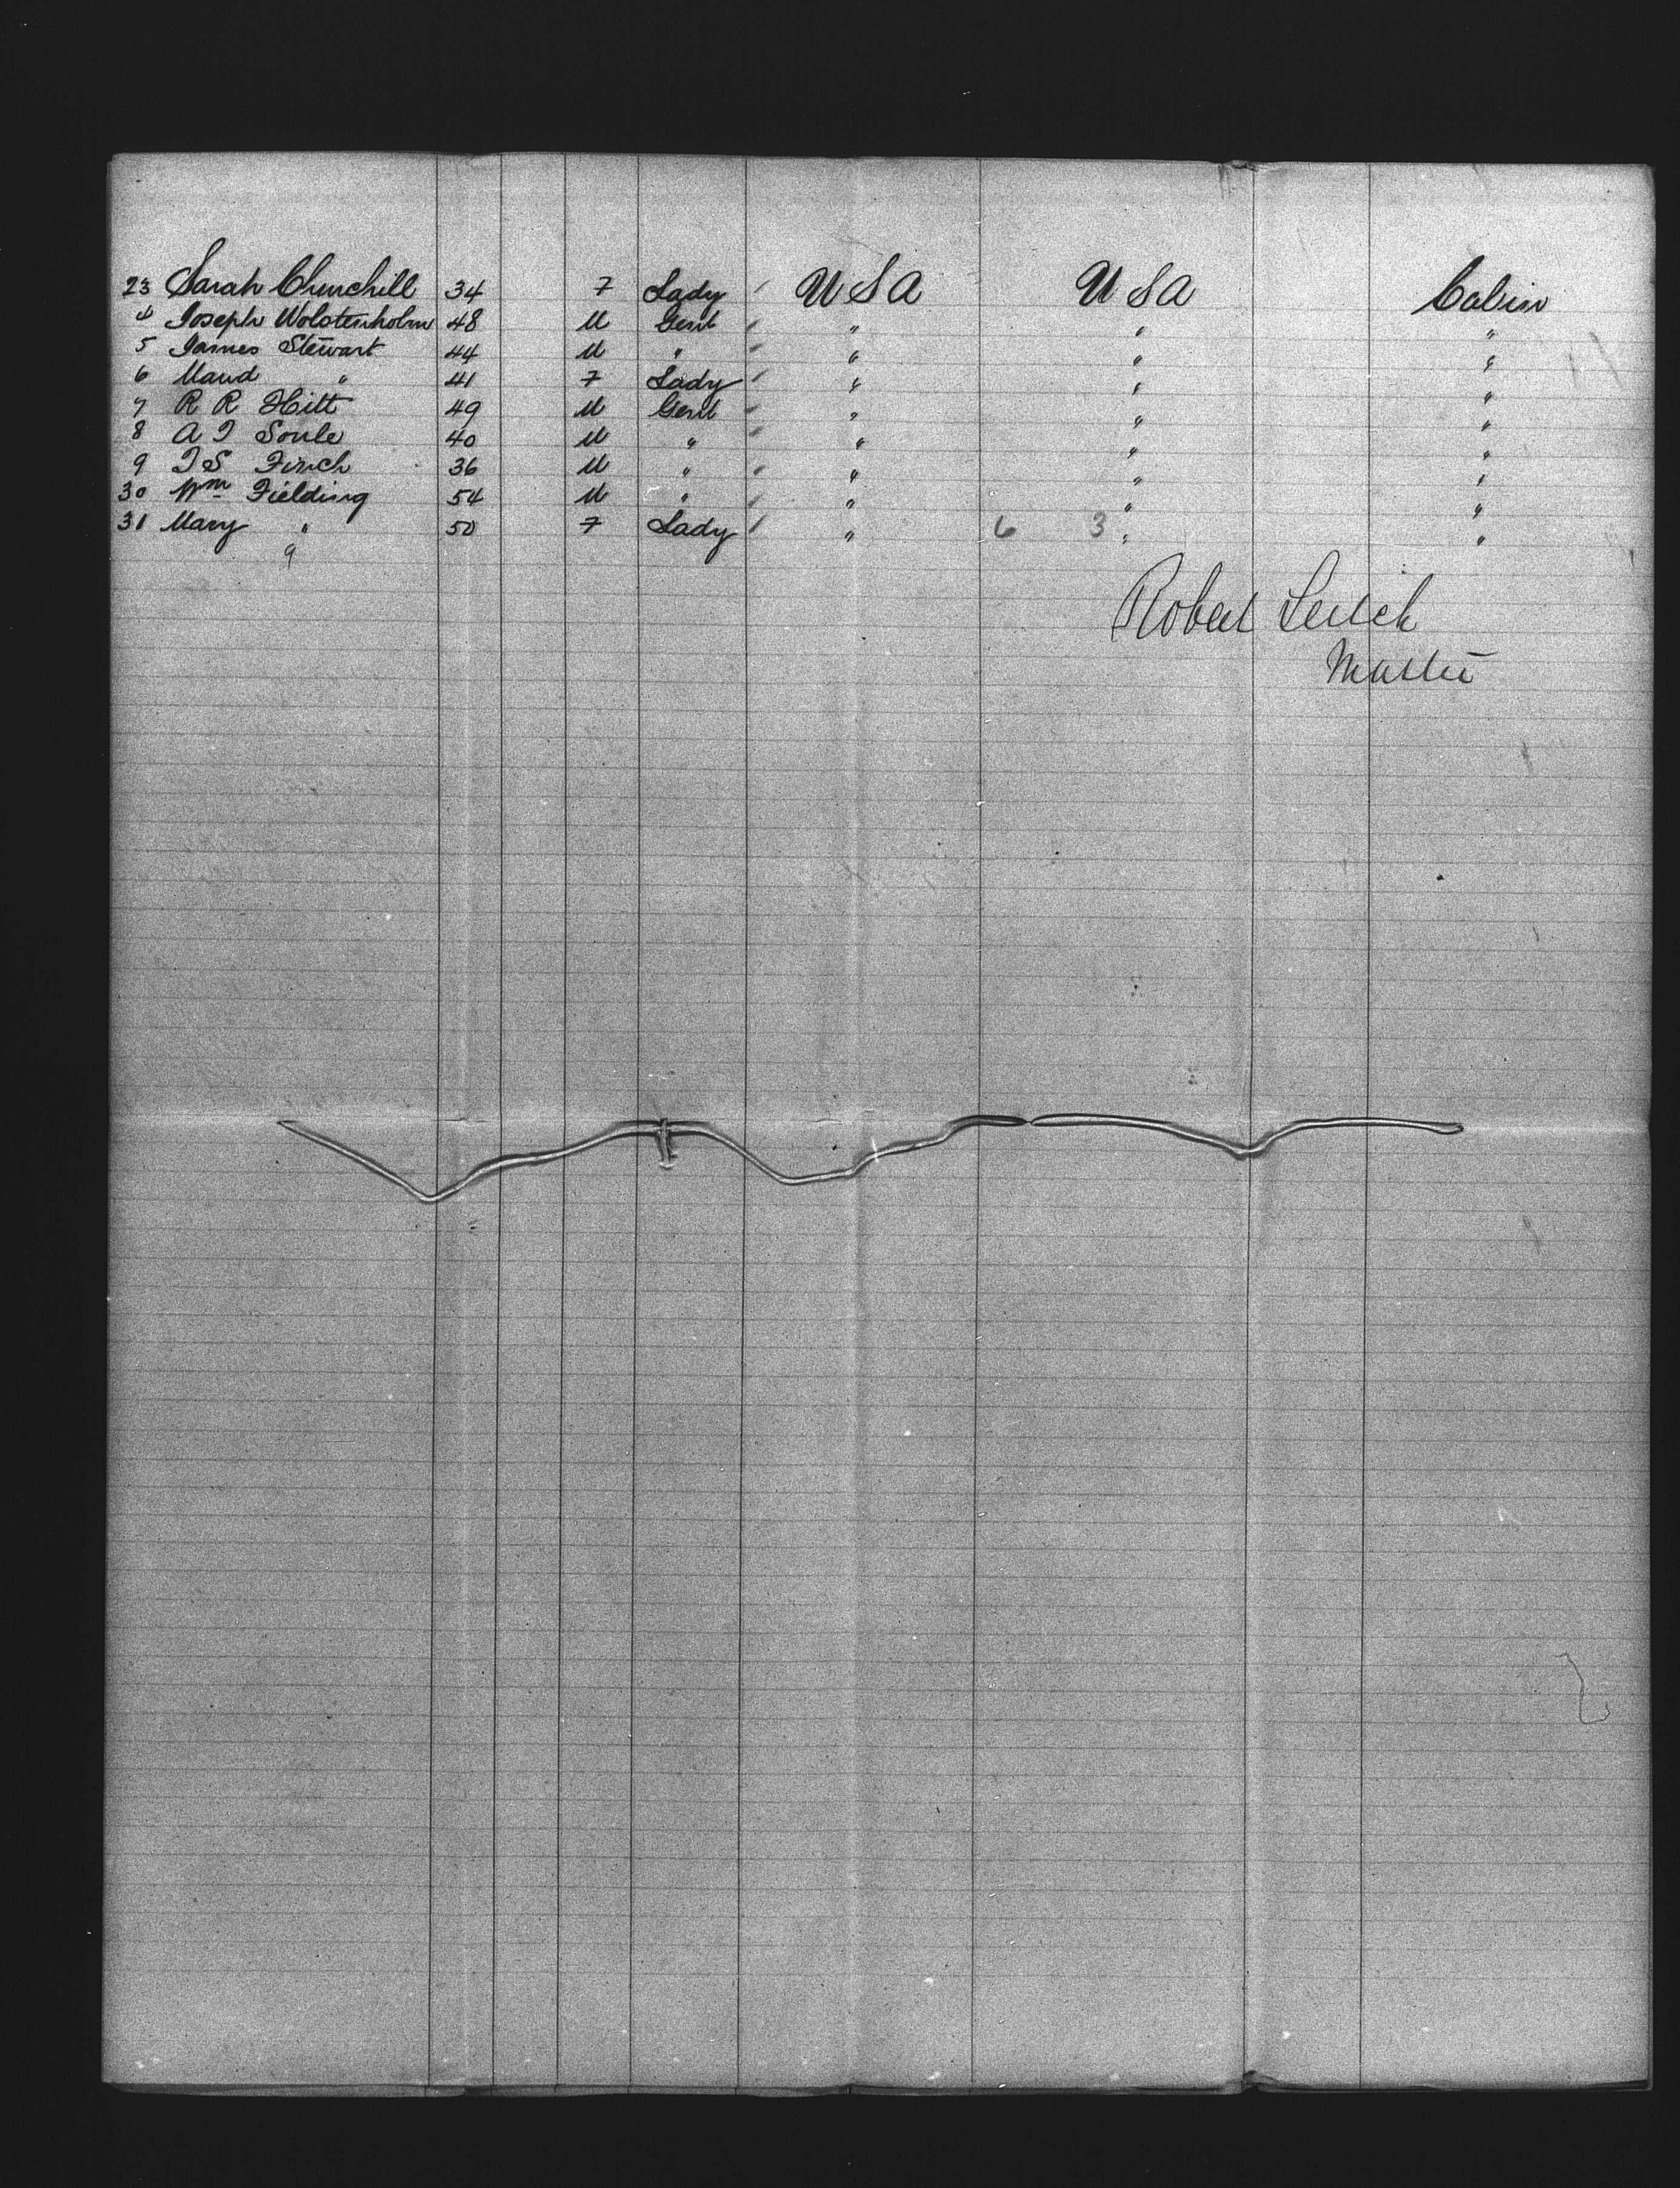 23 Sarah Churchill 34 F Lady USA USA Cabin
4 Joseph Wolstenholm 48 M Gent " " "
5 James Stewart 44 M " " " "
6 Maud " 41 F Lady " " "
7 R R Hitt 49 M Gent " " "
8 A T Soule 40 M " " " "
9 T S Finch 36 M " " " "
30 Wm Fielding 54 M " " " "
31 Mary " 50 F Lady " 6 3 " "
9
Robert Leitch
Master